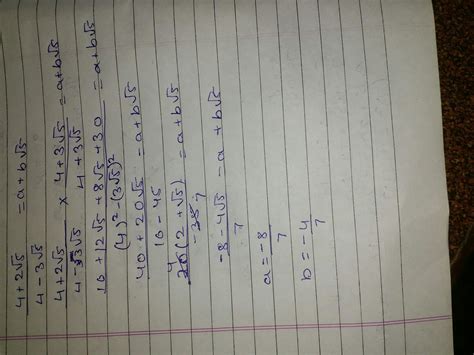 4+2√5 / 4-3√5 = a+b√5
4+2√5 / 4-3√5 × 4+3√5 / 4+3√5 = a+b√5
16+12√5+8√5+30 / (4)²-(3√5)² = a+b√5
40+20√5 / 16-45 = a+b√5
4 20(2+√5) / -35 7 = a+b√5
-8-4√5 / 7 = a+b√5
a = -8/7
b = -4/7